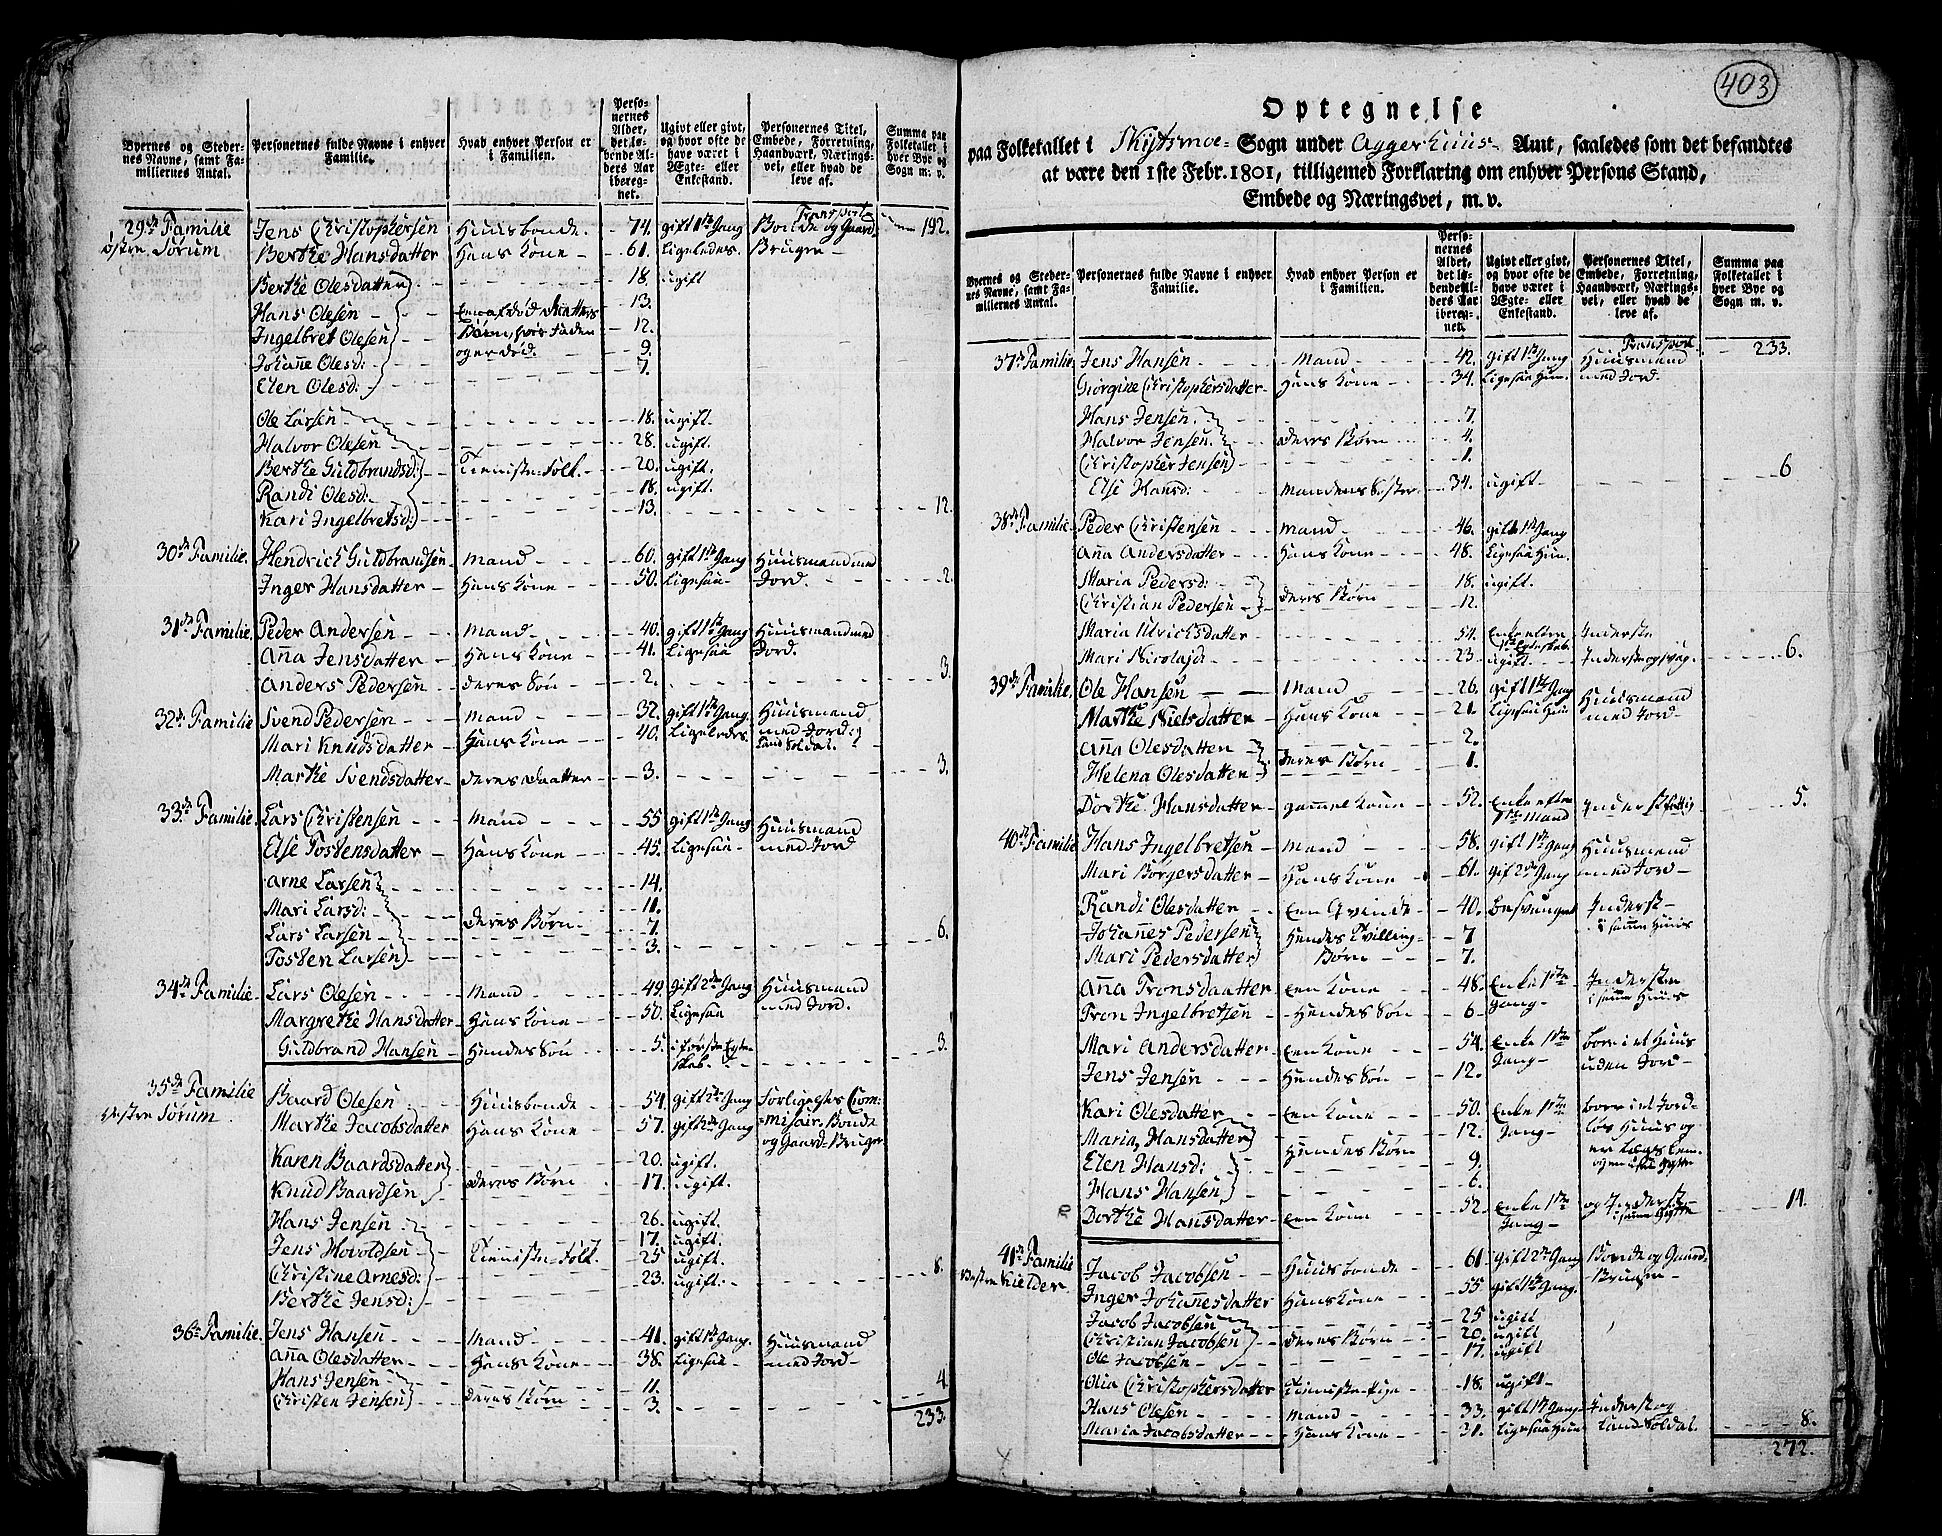 Byernes og Steder-
nes Navne, samt Fa-
miliernes Antal.
Personernes fulde Navne i enhver
Familie.
Hvad enhver Person er
i Familien.
Perso-
nernes
Alder,
det lø-
bende Al-
ders Aar
ibereg-
net.
Ugivt eller givt,
og hvor ofte de
have været i
Ægte- eller
Enkestand.
Personernes Titel,
Embede, Forretning,
Haandværk, Nærings-
vei, eller hvad de
leve af.
Summa paa
Folketallet i
hver Bye og
Sogn m. v.
Transport 192.
29de Familie Jens Christophersen Huusbonde 74. gift 1ste Gang Bonde og Gaard-
østre Sørum Berthe Hansdatter Hans Kone 61. Ligeledes. Bruger
Berthe Olesdatter 18. ugift
Hans Olesen 13.
Ingelbret Olesen 12.
Johanne Olesd: og er død. 9.
Elen Olesd: 7.
Ole Larsen 18. ugift.
Halvor Olesen 28. ugift.
Berthe Guldbrandsd: Tienniste-Folk 20. ugift.
Randi Olesd: 18. ugift.
Kari Ingelbretsd: 13. 12.
30de Familie. Hendrick Guldbrandsen Mand 60. gift 1ste Gang Huusmand med
Inger Hansdatter Hans Kone 50. Ligesaa Jord. 2.
31de Familie. Peder Andersen Mand 40. gift 1ste Gang Huusmand med
Anna Jensdatter Hans Kone 41. Ligesaa Jord.
Anders Pedersen deres Søn 2. 3.
32de Familie Svend Pedersen Mand 32. gift 1ste Gang. Huusmand
Mari Knudsdatter Hans Kone 40. Ligeledes med Jord og
Land Soldat.
Marthe Svendsdatter deres Daatter 3. 3.
33de Familie. Lars Christensen Mand 55 gift 1ste Gang Huusmand
Else Tostensdatter Hans Kone 45. Ligesaa med Jord
Arne Larsen 14.
Mari Larsd: 11.
Lars Larsen deres Børn 7. 6.
Tosten Larsen 3.
34de Familie. Lars Olesen Mand 49 gift 2den Gang Huusmand
Margrethe Hansdatter Hans Kone 50. Ligesaa med Jord.
Guldbrand Hansen Hendes Søn 5. i første Egte- 3.
skab.
35de Familie Baard Olesen Huusbonde 54. gift 2de Gang Forligelses Com-
vestre Sørum Marthe Jacobsdatter Hans Kone 57. gift 2de Gang missair. Bonde
og Gaard-Bruger
Karen Baardsdatter 20. ugift.
Knud Baardsen deres Børn 17. ugift.
Hans Jensen 26. ugift.
Jens Hovoldsen Tienniste-Folk 17. ugift.
Christine Arnesd: 25 ugift. 8.
Berthe Jensd: 23. ugift.
36te Familie. Jens Hansen Mand 41. gift 1ste Gang. Huusmand
Anna Olesdatter Hans Kone 38. Ligesaa med Jord
Hans Jensen 11. 4
Christen Jensen deres Børn 3.
233.
403
Optegnelse
paa Folketallet i Skydsmoe Sogn under Aggerhuus Amt, saaledes som det befandtes
at være den 1ste Febr. 1801, tilligemed Forklaring om enhver Persons Stand,
Embede og Næringsvei, m. v.
Byernes og Steder-
nes Navne, samt Fa-
miliernes Antal.
Personernes fulde Navne i enhver
Familie.
Hvad enhver Person er
i Familien.
Perso-
nernes
Alder,
det lø-
bende Al-
ders Aar
ibereg-
net.
Ugivt eller givt,
og hvor ofte de
have været i
Ægte- eller
Enkestand.
Personernes Titel,
Embede, Forretning,
Haandværk, Nærings-
vei, eller hvad de
leve af.
Summa paa
Folketallet i
hver Bye og
Sogn m. v.
Transport 233.
37te Familie Jens Hansen Mand 42. gift 1ste Gang Huusmand
Giørgine Christophersdatter Hans Kone 34. Ligesaa Hun. med Jord.
Hans Jensen 7.
Halvor Jensen deres Børn 4.
Christopher Jensen 1.
Else Hansd: Mandens Søster 34. ugift 6
38te Familie Peder Christensen Mand 46. gift 1ste Gang
Anna Andersdatter Hans Kone 48. Ligesaa Hun.
Maria Pedersd: 18. ugift.
Christian Pedersen deres Børn 12.
Maria Ulricksdatter 54. Enke efter Inderste
1ste Egteskab.
Mari Nicolajd: 23 ugift Inderste og svag 6.
39te Familie. Ole Hansen Mand 26. gift 1ste Gang Huusmand
Marthe Nielsdatter Hans Kone 21. Ligesaa Hun med Jord
Anna Olesdatter 2.
Helena Olesdatter deres Børn 1.
Dorthe Hansdatter gammel Kone 52. Enke efter Inderst fattig 5.
1ste Mand
40de Familie Hans Ingelbretsen Mand 58. gift 1ste Gang Huusmand
Mari Borgersdatter Hans Kone 61. gif 2de Gang med Jord
Randi Olesdatter Een Qvinde 40. besvangret Inderst
Johanes Pedersen Hendes Tvilling- 7 i samme Huus
Mari Pedersdatter Børn 7.
Anna Tronsdaatter Een Kone 48. Enke 1ste Inderste
Tron Ingelbretsen Hendes Søn 6 Gang i samme Huus
Mari Andersdatter Een Kone 54. Enke 1ste boer i et Huus
Jens Jensen Hendes Søn 12. Gang uden Jord
Kari Olesdatter Een Kone 50. Enke 1ste boer i et Jord-
Maria Hansdatter Hendes Børn 12. Gang løs Huus og
Elen Hansd: 9. er Lægs Lem
Hans Hansen 6.
Dorthe Hansdatter Een Kone 52. Enke 1ste og Inderste 14.
Gang
41de Familie Jacob Jacobsen Huusbonde 61 gift 2de Gang Bonde og Gaard-
Vestre Kielder Inger Johannesdatter Hans Kone 55 gift 1ste Gang. Bruger
Jacob Jacobsen 25 ugift
Christian Jacobsen deres Børn 20. ugift
Ole Jacobsen 17. ugift
Olia Christophersdatter Tienniste-Pige 18. ugift
Hans Olesen Mand 33. gift 1ste Gang Inderst og
Maria Jacobsdatter Hans Kone 31. Ligesaa Hun Land Soldat. 8.
272.